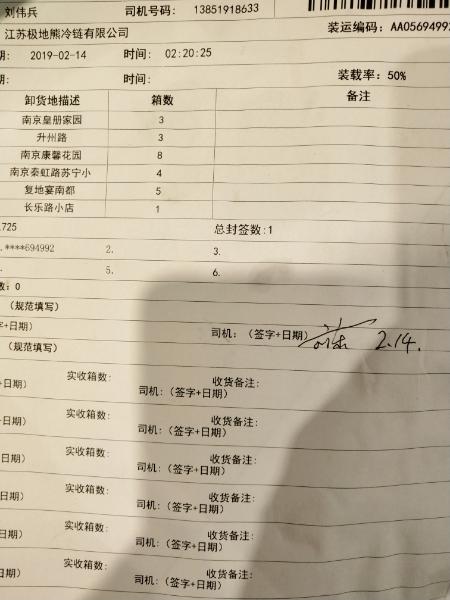 刘伟兵 司机号码: 13851918633
江苏极地熊冷链有限公司 装运编码: AA0569499
期: 2019-02-14 时间: 02:20:25
期: 时间: 装载率: 50%
卸货地描述 箱数 备注
南京皇册家园 3
升州路 3
南京康馨花园 8
南京秦虹路苏宁小 4
复地宴南都 5
长乐路小店 1
.725 总封签数:1
.****694992 2. 3.
. 5. 6.
数: 0
(规范填写)
字+日期) 司机: (签字+日期) 2.14.
(规范填写)
实收箱数: 收货备注:
+日期) 司机: (签字+日期)
实收箱数: 收货备注:
+日期) 司机: (签字+日期)
实收箱数: 收货备注:
+日期) 司机: (签字+日期)
实收箱数: 收货备注:
+日期) 司机: (签字+日期)
实收箱数: 收货备注:
+日期) 司机: (签字+日期)
实收箱数: 收货备注:
日期) 司机: (签字+日期)